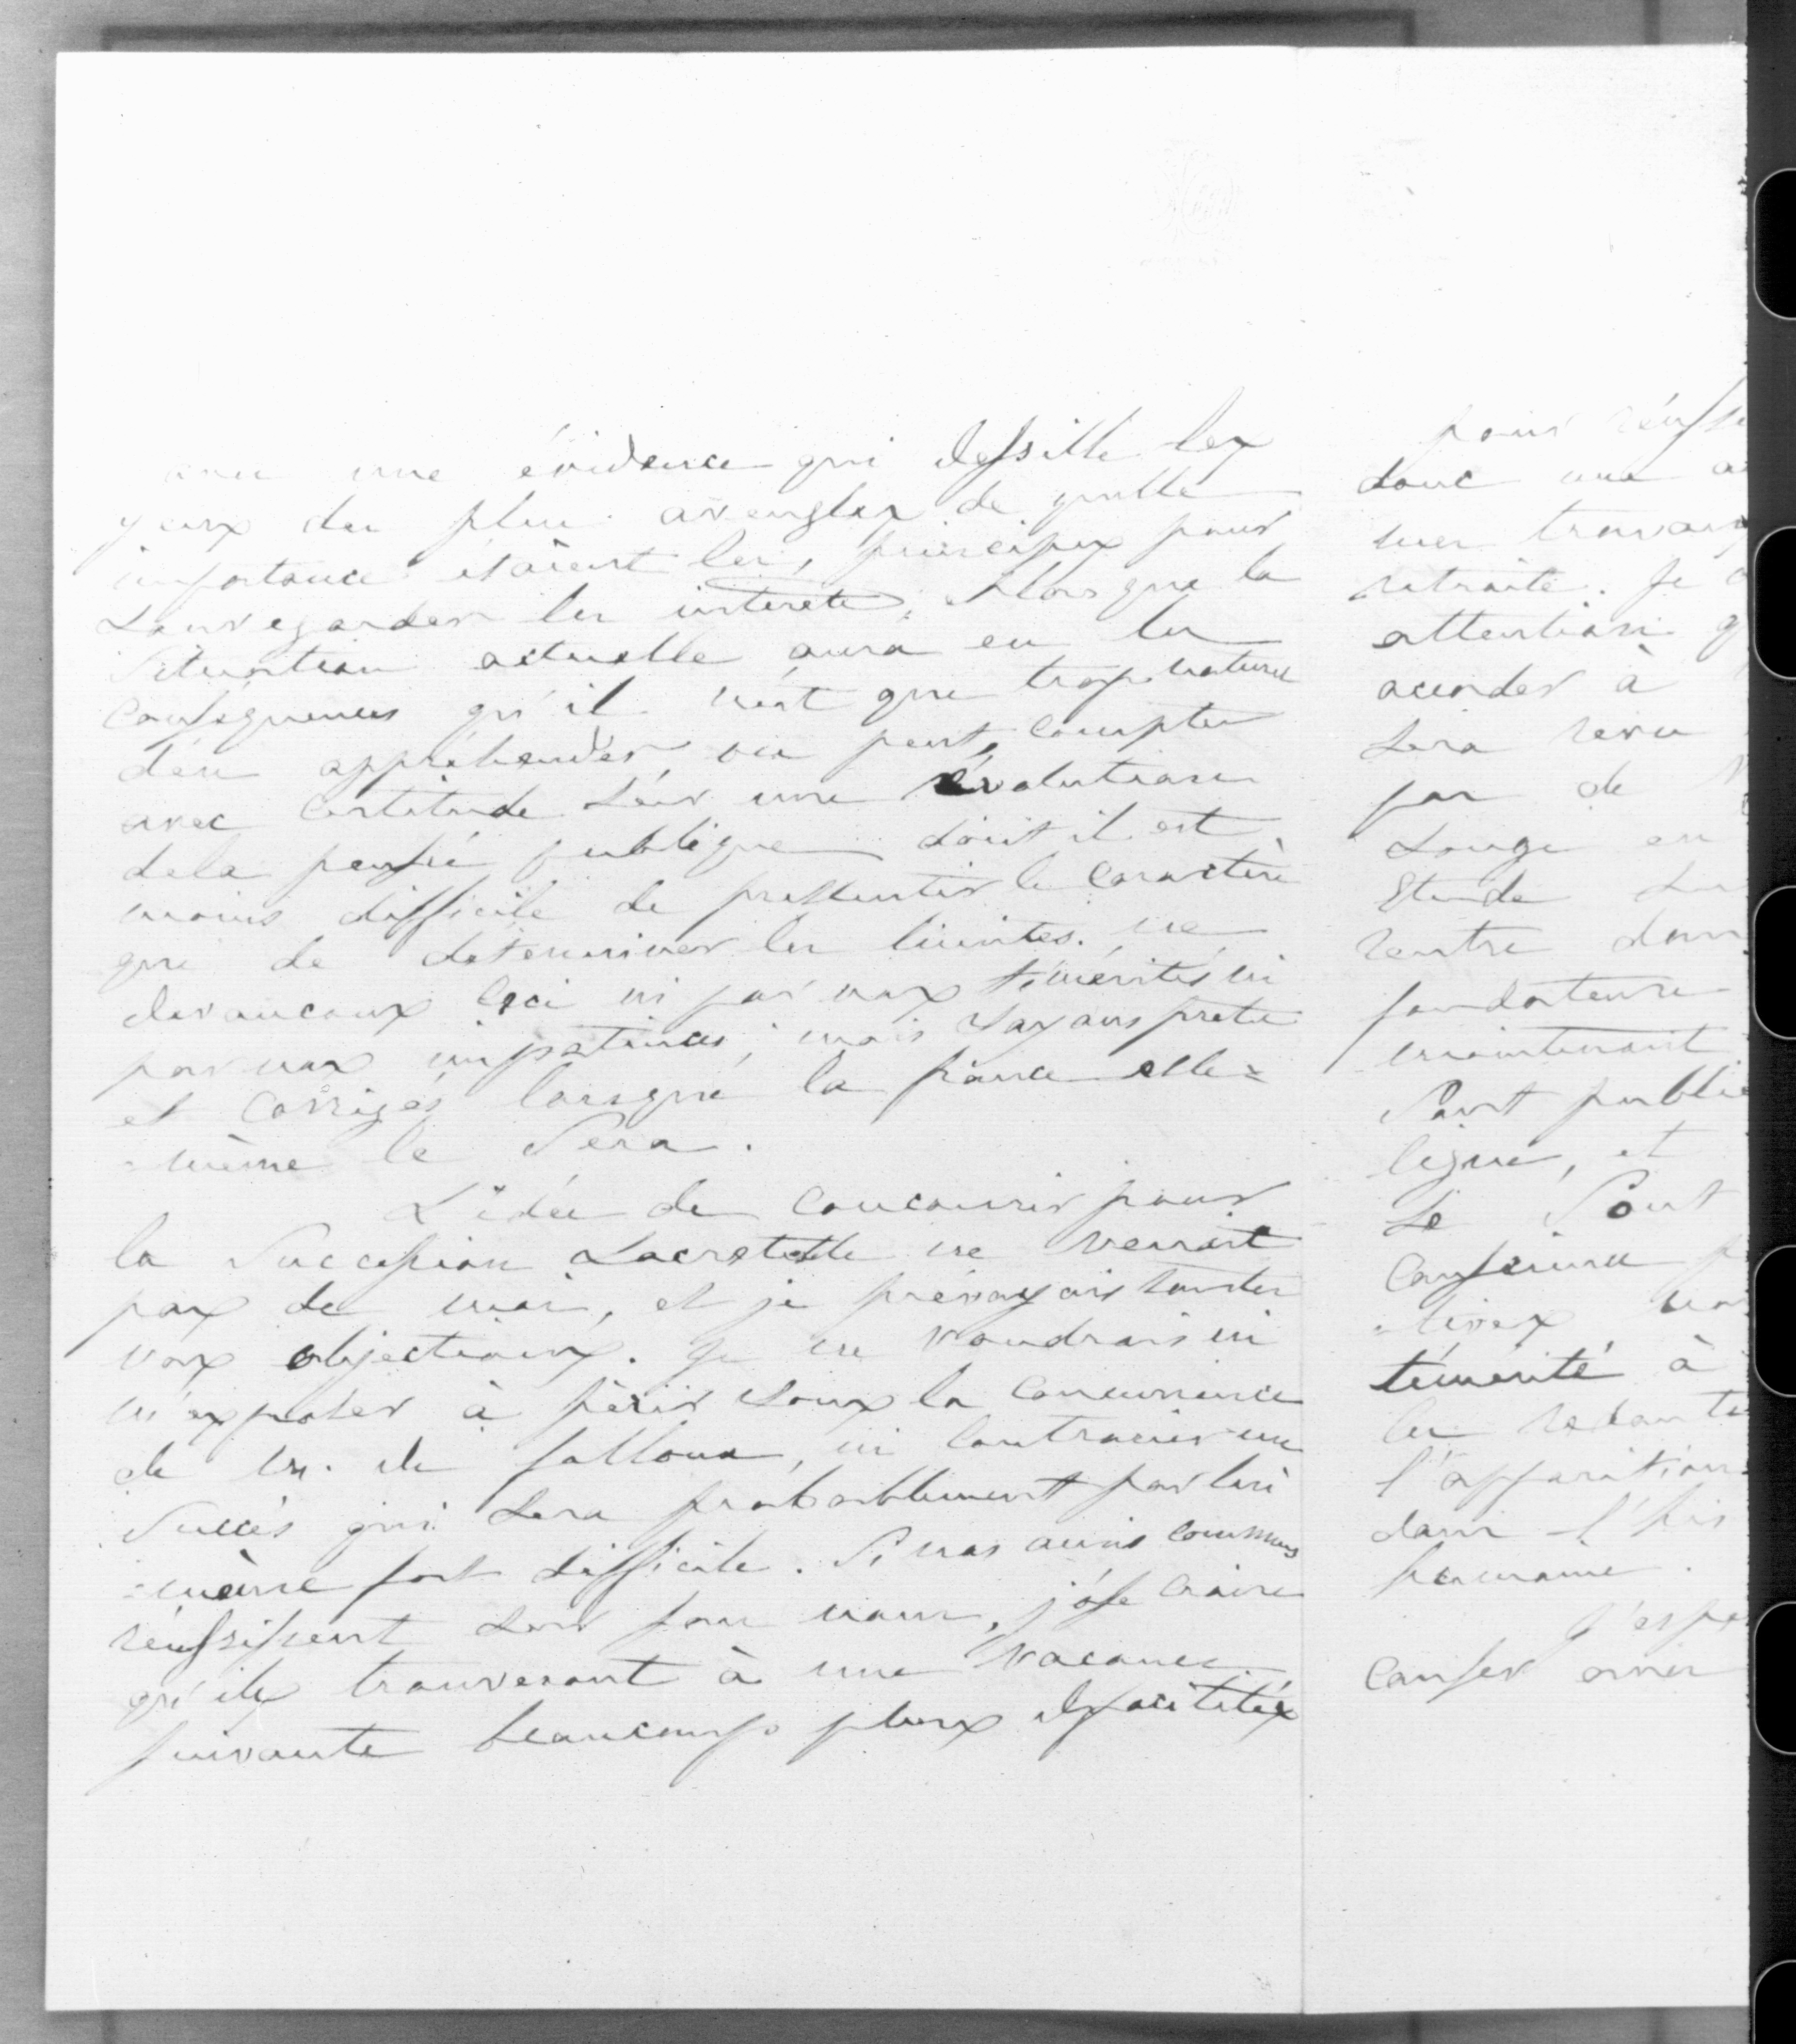 avec une évidence qui dessille les
yeux des plus aveugles de quelle
importance étaient les principes pour
sauvegarder les intérêts. Alors que la
situation actuelle aura eu les
conséquences qu'il n'est que trop naturel
d'en appréhender, on peut compter
avec certitude sur une évolution
de la pensée publique dont il est
moins difficile de pressentir le caractère
que de déterminer les limites. ne
devançons ceci ni par nos témérités ni
par nos impatiences; mais soyons prêts
et corrigés lorsque la france elle=
=même le sera.
L'idée de concourir pour
la succession Lacretelle ne venait
pas de moi, et je prévoyais toutes
vos objections. Je ne voudrais ni
m'exposer à périr sous la concurrence
de m. de falloux, ni contrarier un
succès qui sera probablement par lui
=même fort difficile. Si nos amis communs
réussissent pour nous, j'ose croire
qu'ils trouveront à une vacance
suivante beaucoup plus de facilités
pour réussi
donc
mes travaux
retraite. Je
attention q
accorder à
sera revu
par de
songe en
Etude
rentre dans
fondateurs
maintenant
sont publié
ligne, et
se sont
conscience
=tives
témérité à
les
l'apparition
dans l'his
humaine.
J'espè
causer avec